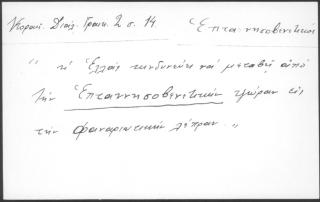 Κοραή. Διάλ. Γραικ. 2 σ. 14 Ἑπτα νησοβενετικός
" ἡ Ἑλλὰς κινδυνεύει νὰ μεταβῇ ἀπὸ
τὴν Ἑπταννησοβενετικὴν ψώραν εἰς
τὴν φαναριωτικὴν λέπραν. "